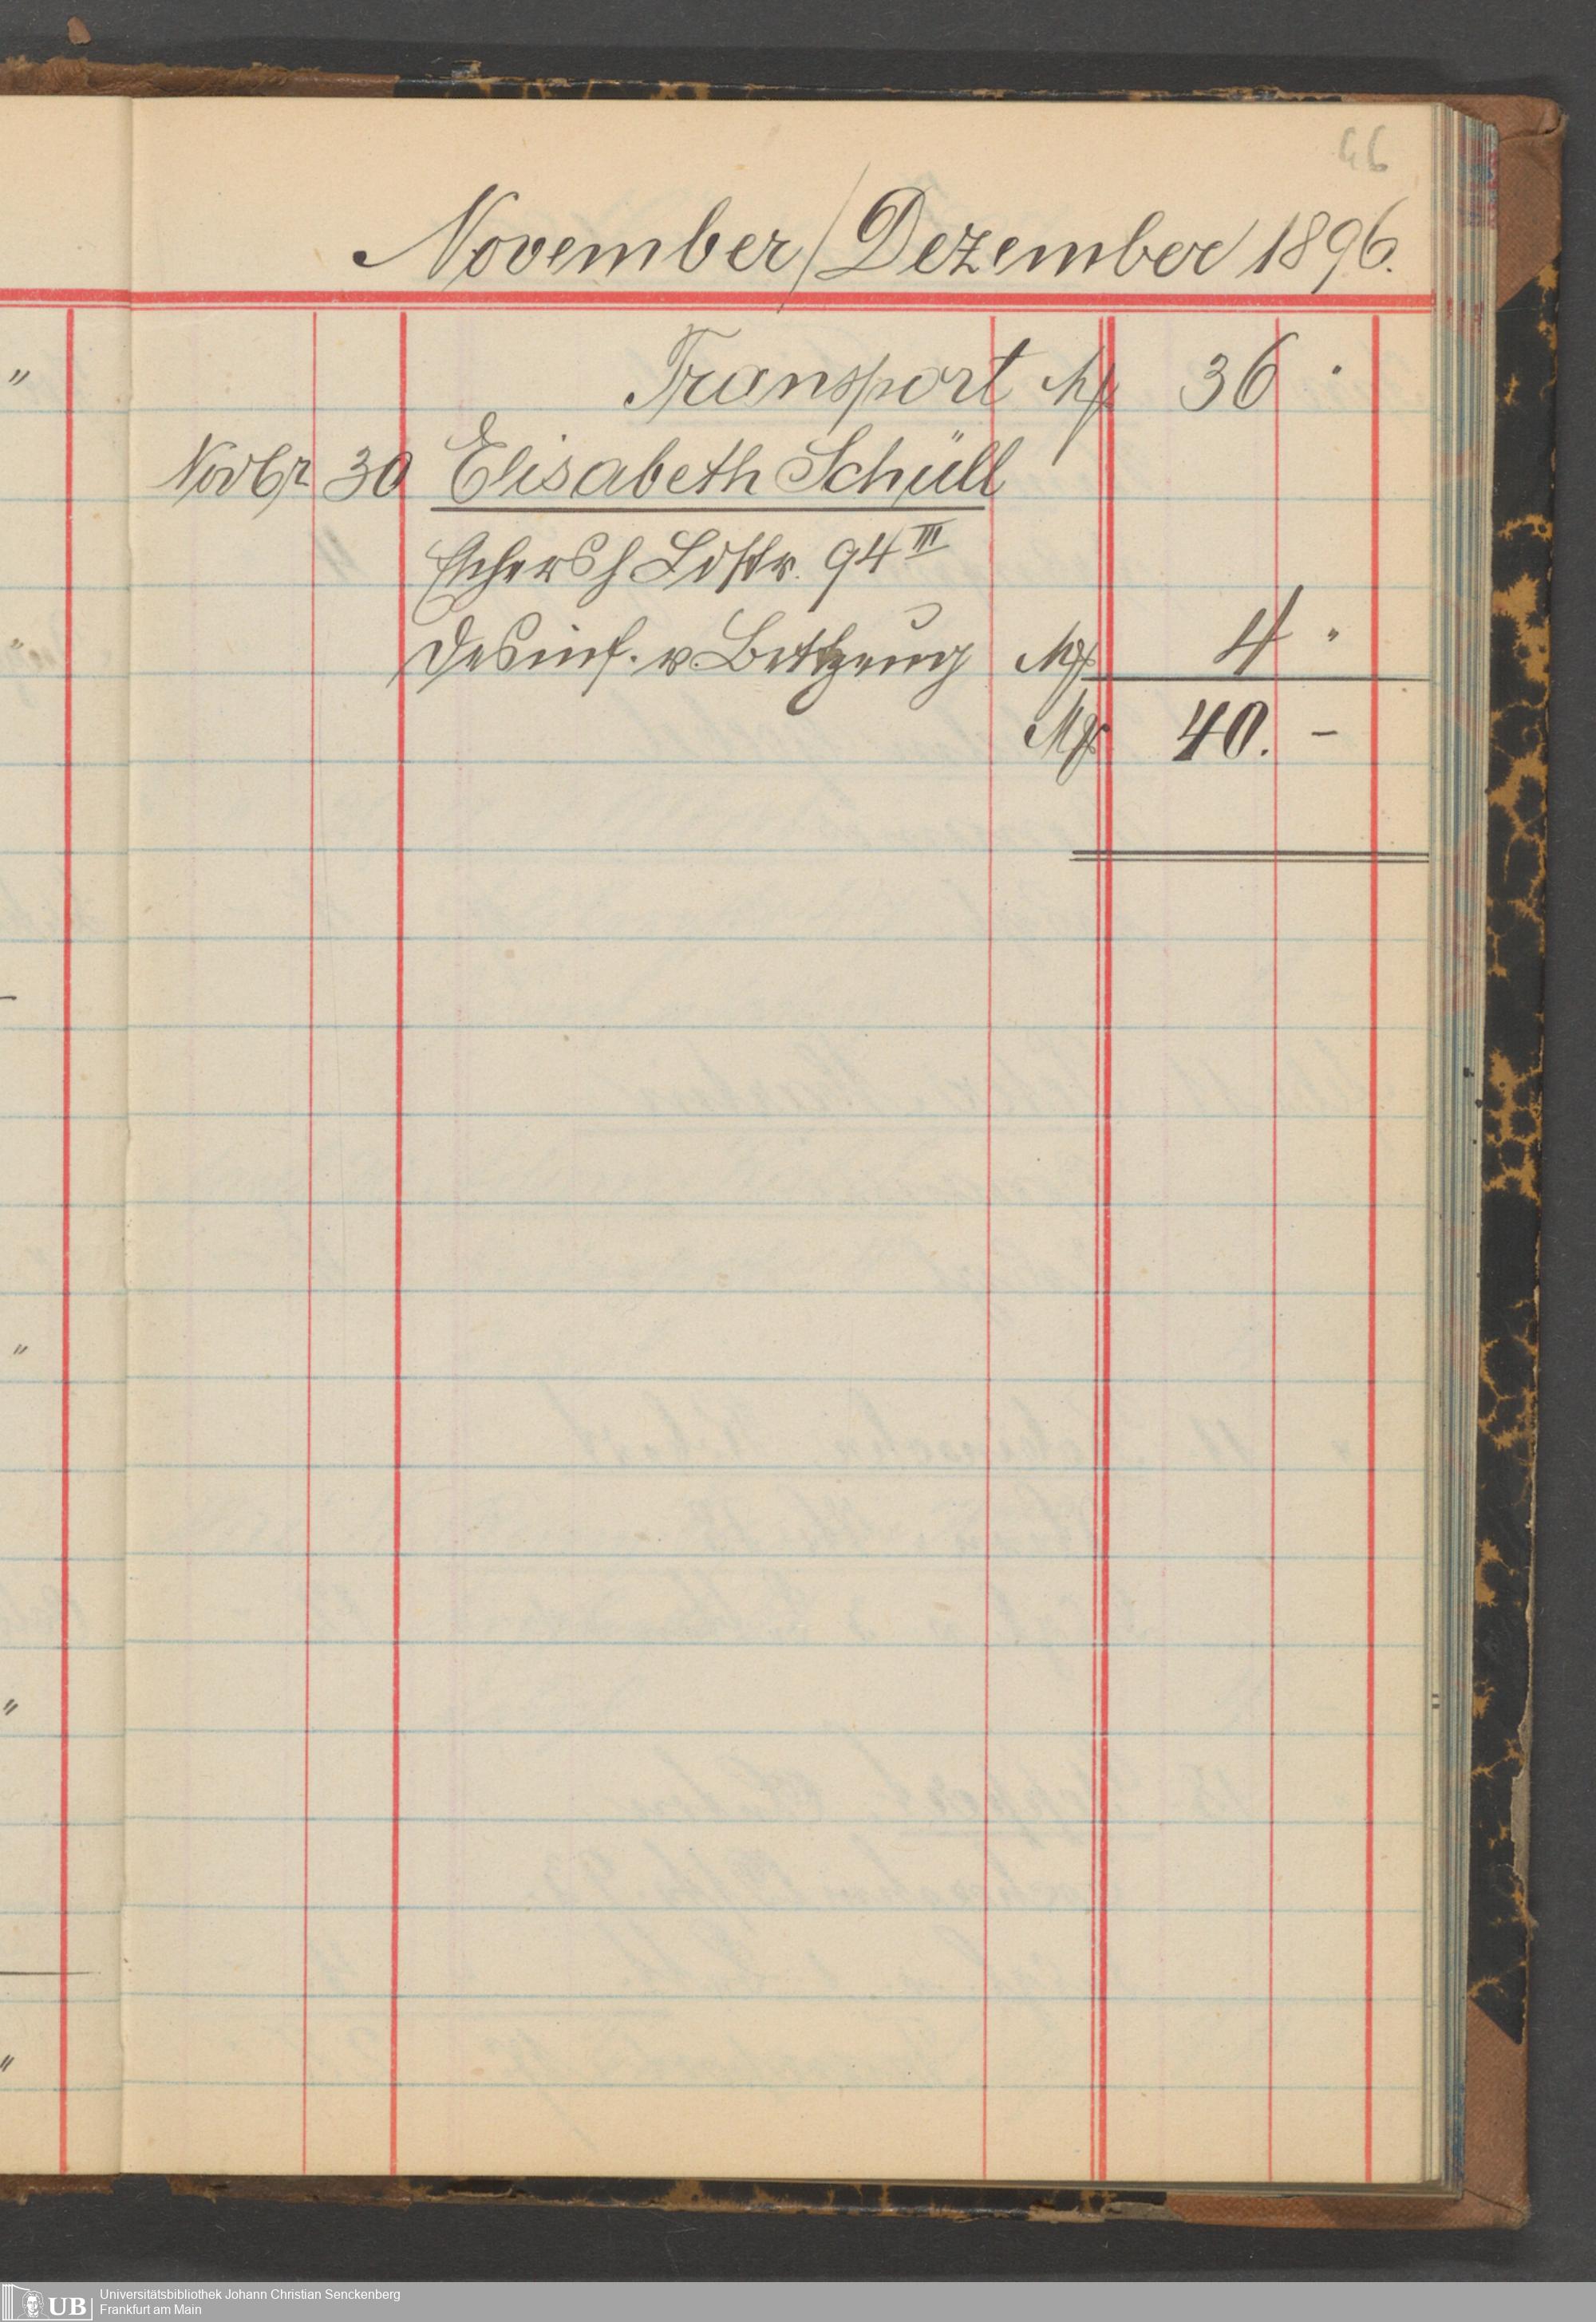 46
November/Dezember 1896.
Transport Mk 36 "
Novbr 30 Elisabeth Schüll
Eschersh Ldstr. 94 III
Desinf. v. Bettzeug Mk 4 "
Mk 40. –
UB
Universitätsbibliothek Johann Christian Senckenberg
Frankfurt am Main